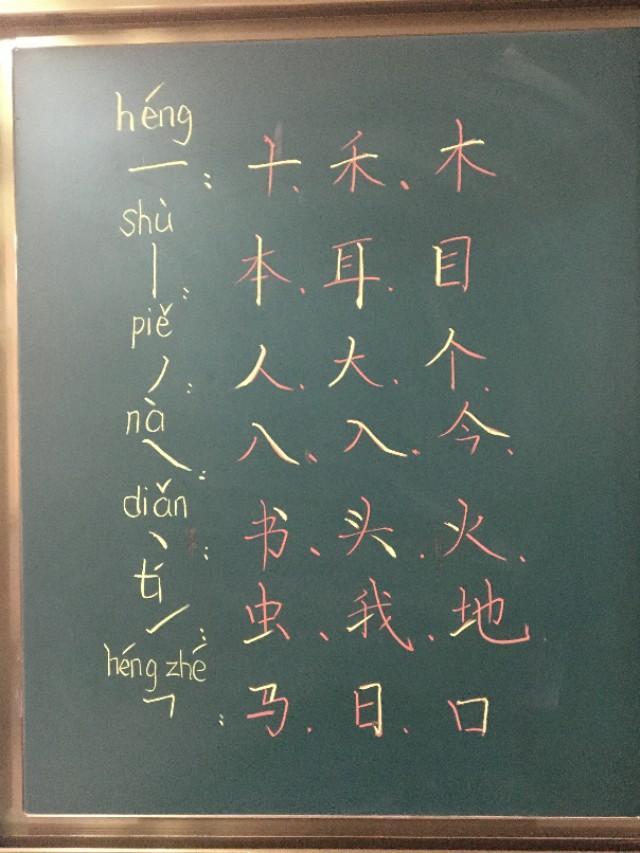 héng
一：十、禾、木
shù
丨：本、耳、目
piě
丿：人、大、个
nà
㇏：八、入、今
diǎn
丶：书、头、火
tí
㇀：虫、我、地
héng zhé
𠃍：马、日、口